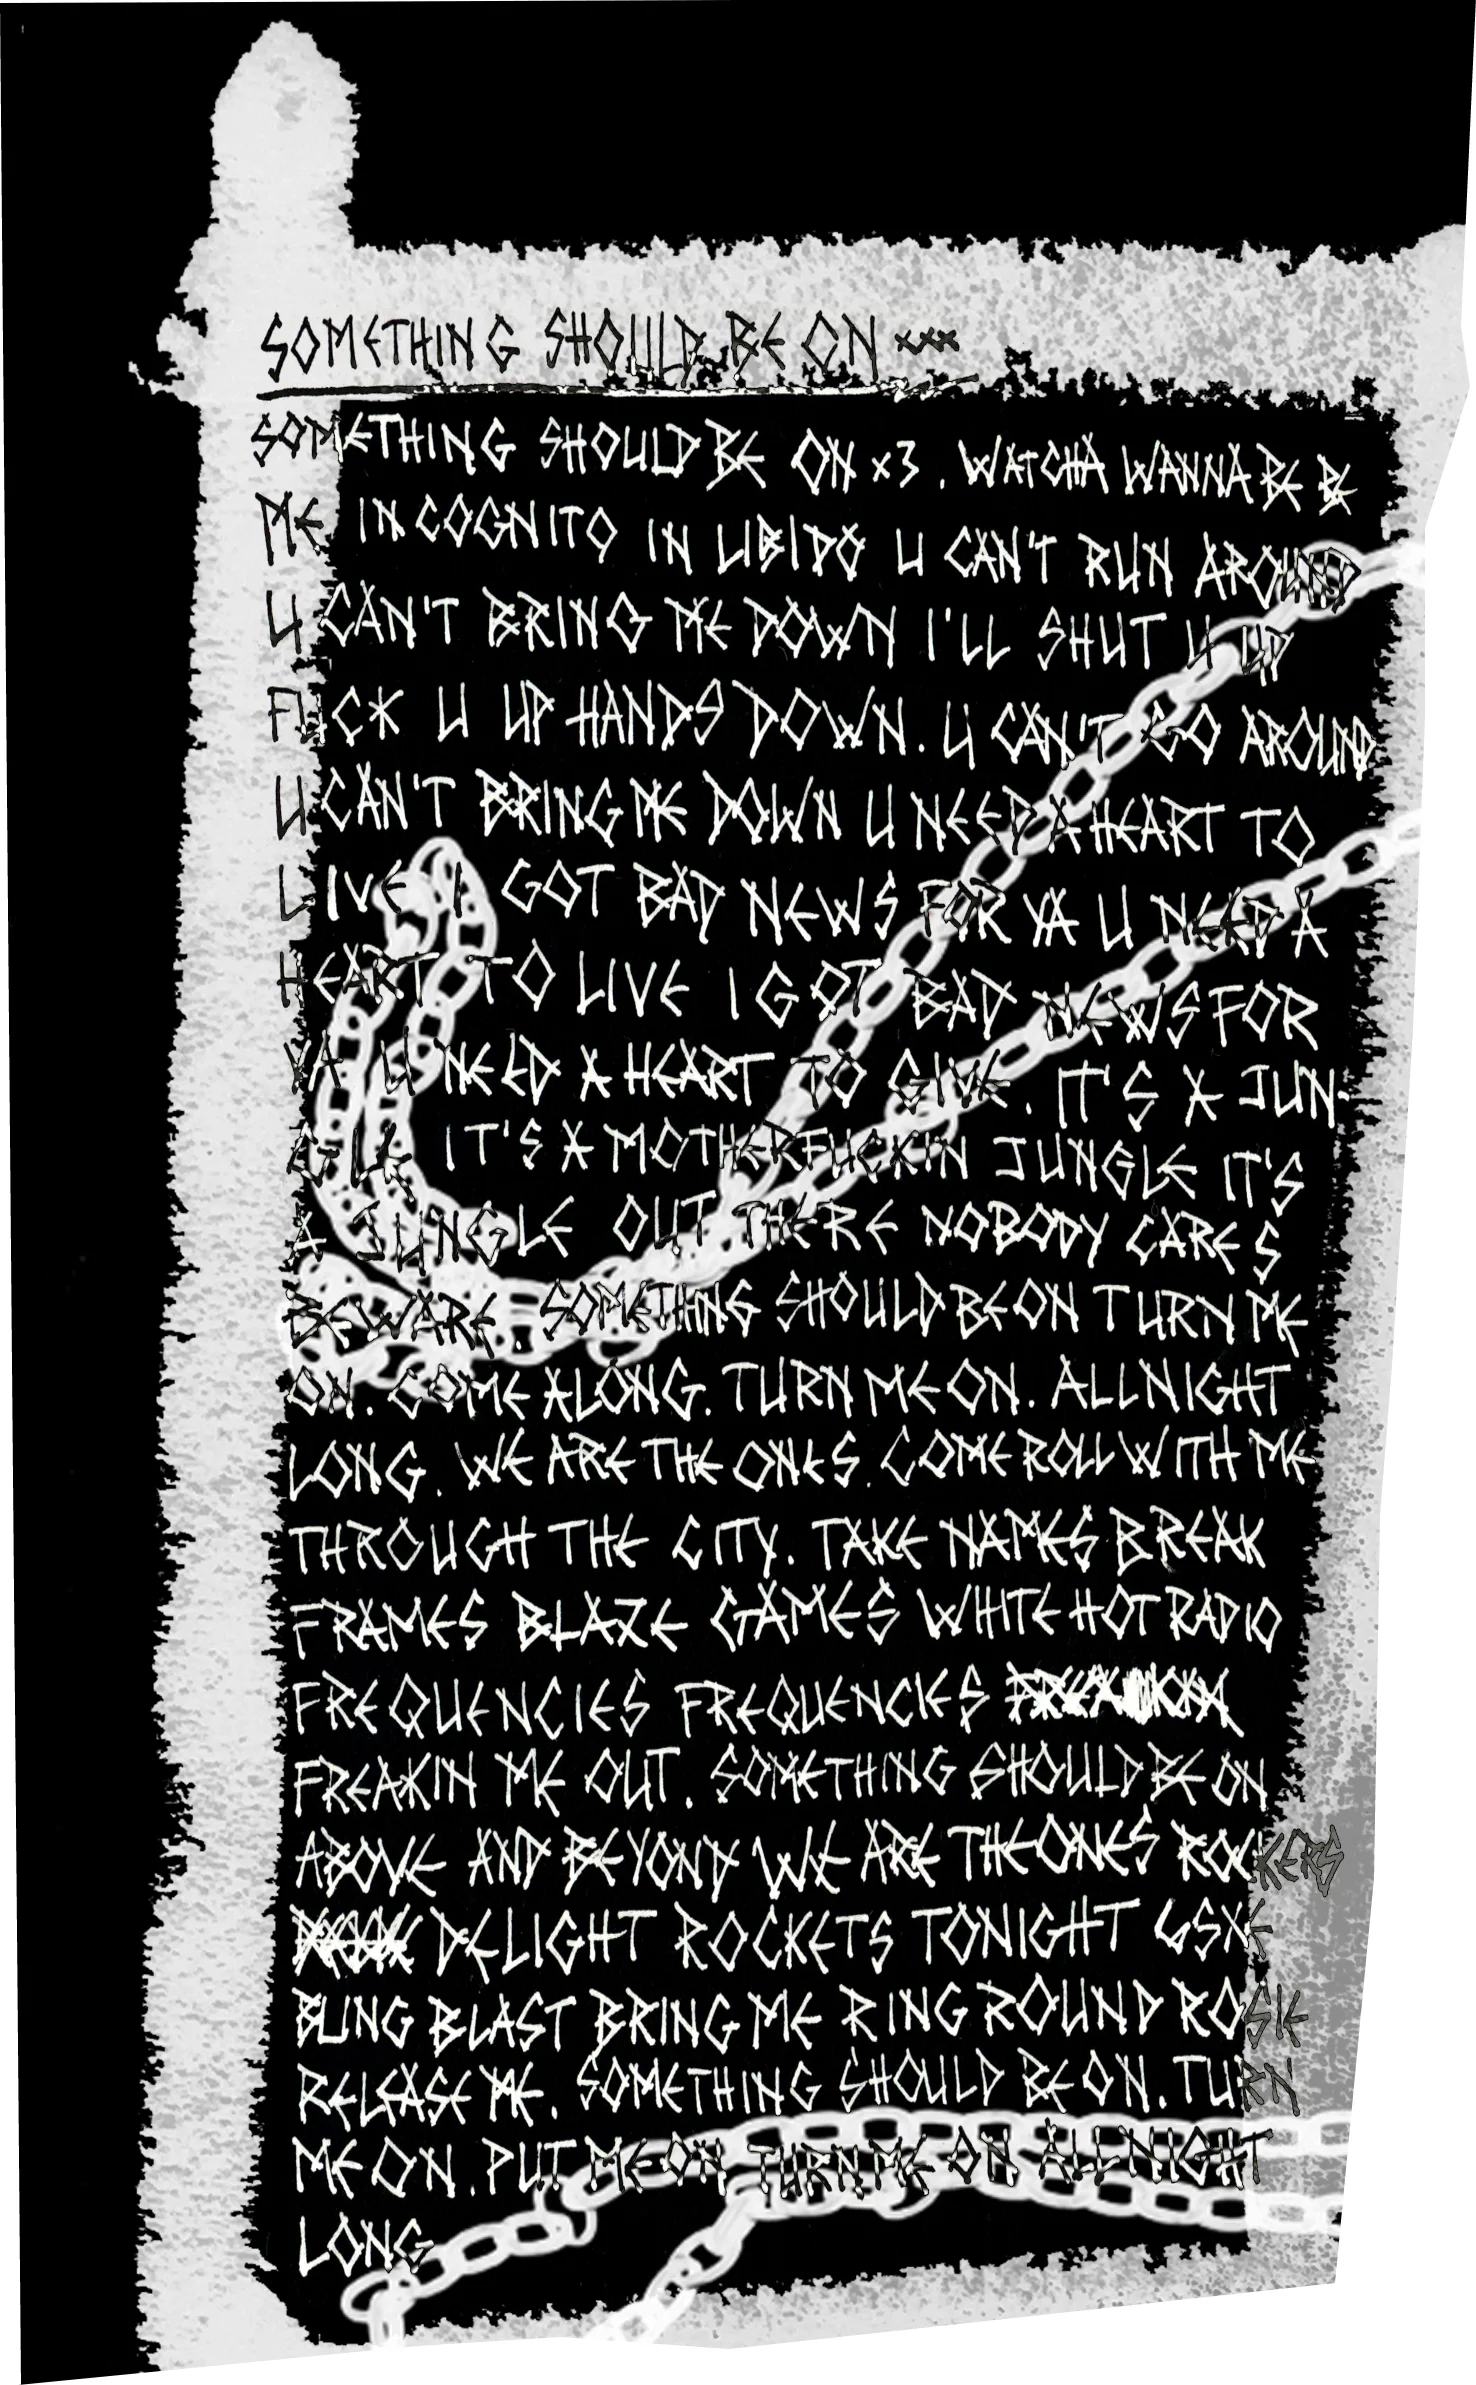 SOMETHING SHOULD BE ON xxx
SOMETHING SHOULD BE ON x3. WATCHA WANNA BE BE
ME INCOGNITO IN LIBIDO U CAN'T RUN AROUND
U CAN'T BRING ME DOWN I'LL SHUT U UP
FUCK U UP HANDS DOWN. U CAN'T GO AROUND
U CAN'T BRING ME DOWN U NEED A HEART TO
LIVE I GOT BAD NEWS FOR YA U NEED A
HEART TO LIVE I GOT BAD NEWS FOR
YA U NEED A HEART TO GIVE. IT'S A JUN-
GLE IT'S A MOTHERFUCKIN JUNGLE IT'S
A JUNGLE OUT THERE NOBODY CARES
BEWARE. SOMETHING SHOULD BE ON TURN ME
ON. COME ALONG. TURN ME ON. ALL NIGHT
LONG. WE ARE THE ONES. COME ROLL WITH ME
THROUGH THE CITY. TAKE NAMES BREAK
FRAMES BLAZE GAMES WHITE HOT RADIO
FREQUENCIES FREQUENCIES
FREAKIN ME OUT. SOMETHING SHOULD BE ON
ABOVE AND BEYOND WE ARE THE ONES ROCKERS
DELIGHT ROCKETS TONIGHT
BUNG BLAST BRING ME RING ROUND ROSIE
RELEASE ME. SOMETHING SHOULD BE ON. TURN
ME ON. PUT ME ON TURN ME ON ALL NIGHT
LONG